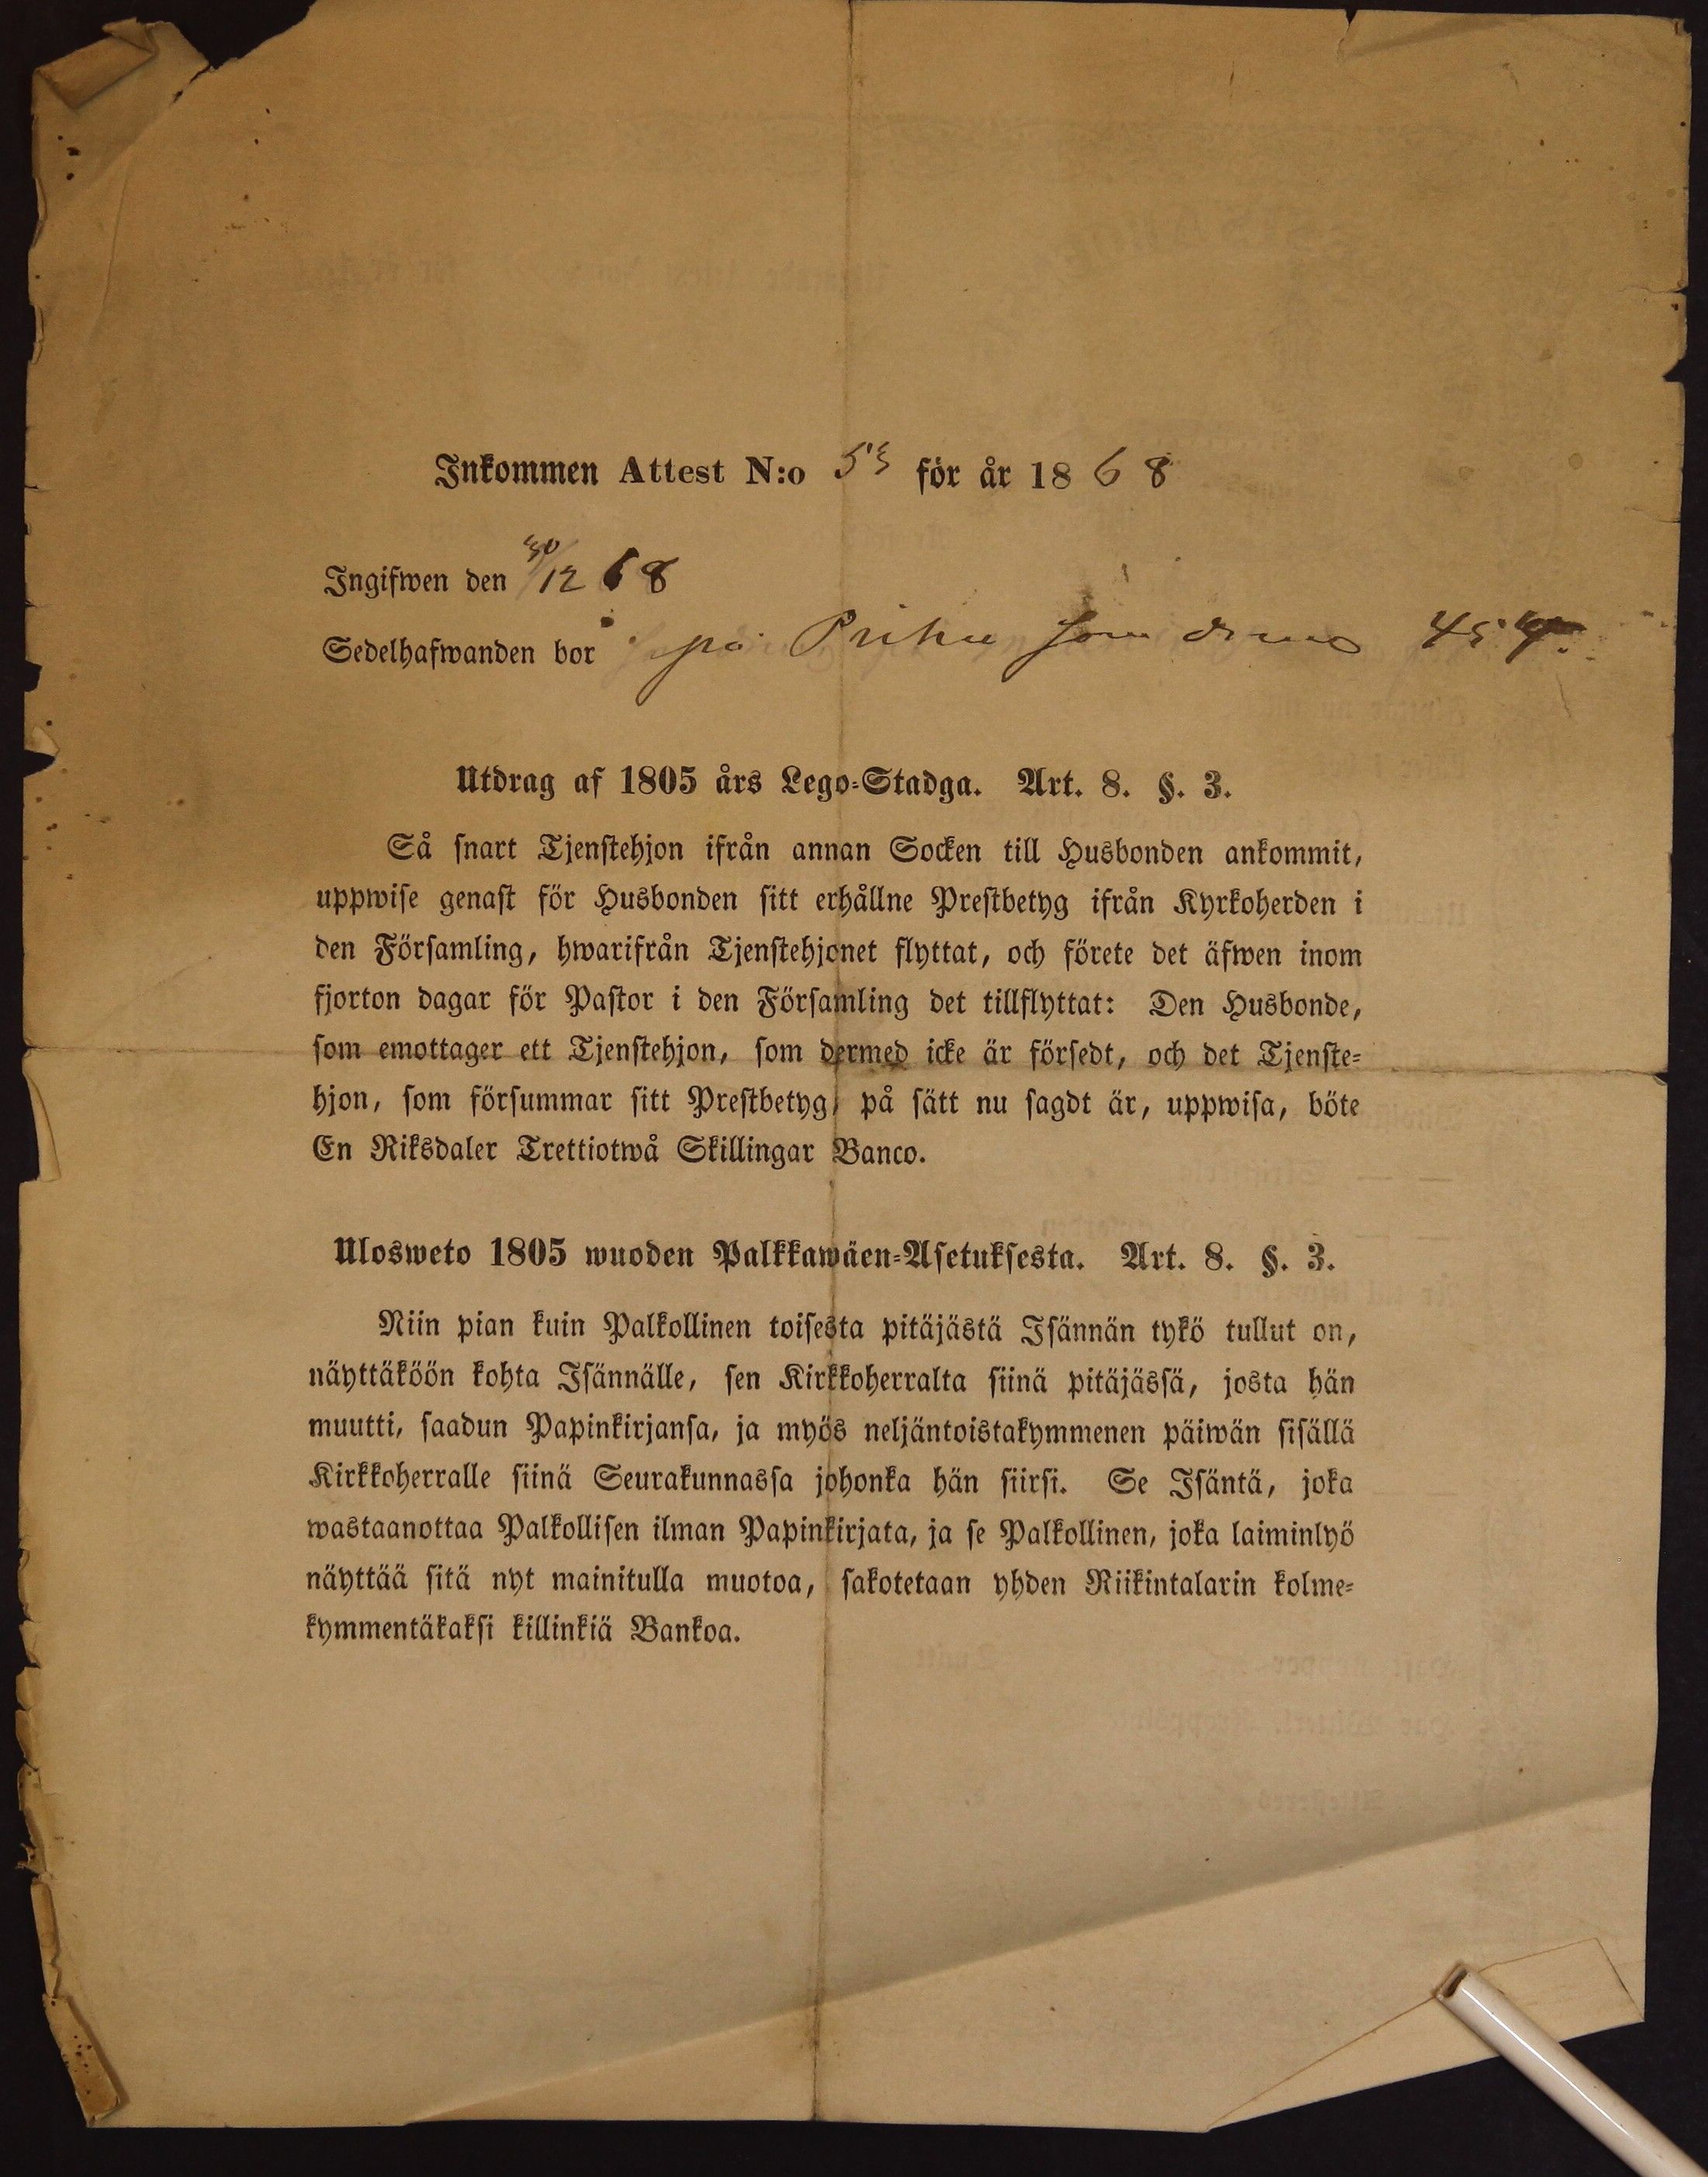 Inkommen Attest N:o 53 för år 1868
Ingifwen den 30/12 68
Sedelhafwanden bor på som 454
Utdrag af 1805 års Lego-Stadga. Art. 8. §. 3.
Så snart Tjenstehjon ifrån annan Socken till Husbonden ankommit,
uppwise genast för Husbonden sitt erhållne Prestbetyg ifrån Kyrkoherden i
den Församling, hwarifrån Tjenstehjonet flyttat, och förete det äfwen inom
fjorton dagar för Pastor i den Församling det tillflyttat: Den Husbonde,
som emottager ett Tjenstehjon, som dermed icke är försedt, och det Tjenste-
hjon, som försummar sitt Prestbetyg, på sätt nu sagdt är, uppwisa, böte
En Riksdaler Trettiotwå Skillingar Banco.
Ulosweto 1805 wuoden Palkkawäen-Asetuksesta. Art. 8. §. 3.
Niin pian kuin Palkollinen toisesta pitäjästä Isännän tykö tullut on,
näyttäköön kohta Isännälle, sen Kirkkoherralta siinä pitäjässä, josta hän
muutti, saadun Papinkirjansa, ja myös neljäntoistakymmenen päiwän sisällä
Kirkkoherralle siinä Seurakunnassa johonka hän siirsi. Se Isäntä, joka
wastaanottaa Palkollisen ilman Papinkirjata, ja se Palkollinen, joka laiminlyö
näyttää sitä nyt mainitulla muotoa, sakotetaan yhden Riikintalarin kolme-
kymmentäkaksi killinkiä Bankoa.